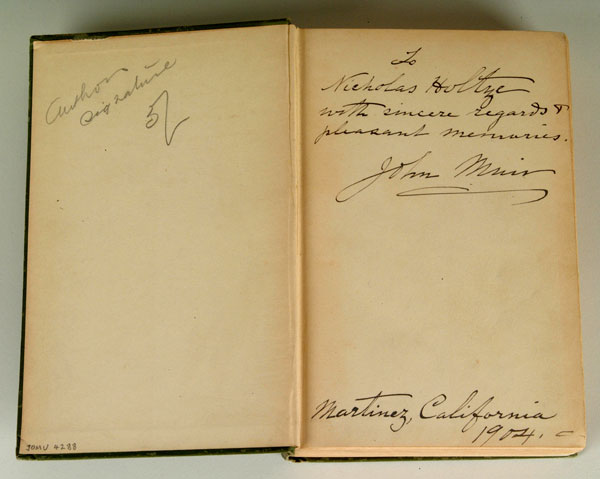 Author
signature
JOMU 4288
To
Nicholas Holtze
with sincere regards &
pleasant memories.
John Muir
Martinez, California
1904.